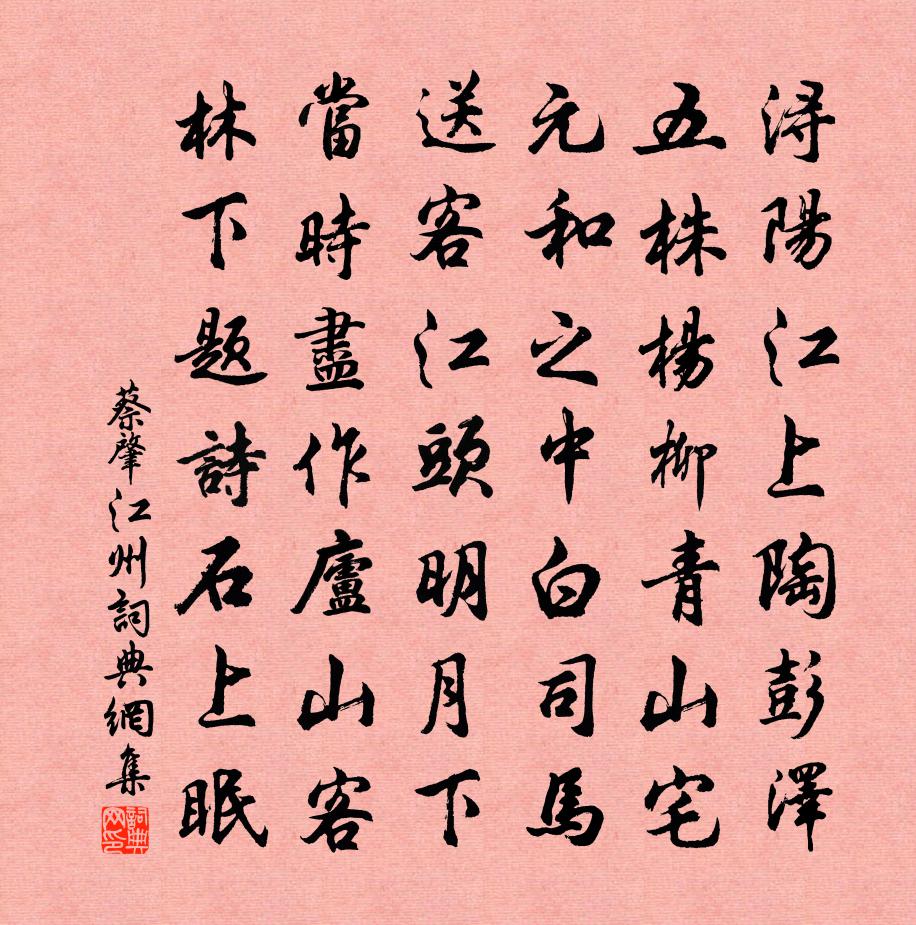 浔陽江上陶彭澤
五株楊柳青山宅
元和之中白司馬
送客江頭明月下
當時盡作廬山客
林下题詩石上眠
蔡肇江州詞典網集
詞典网印